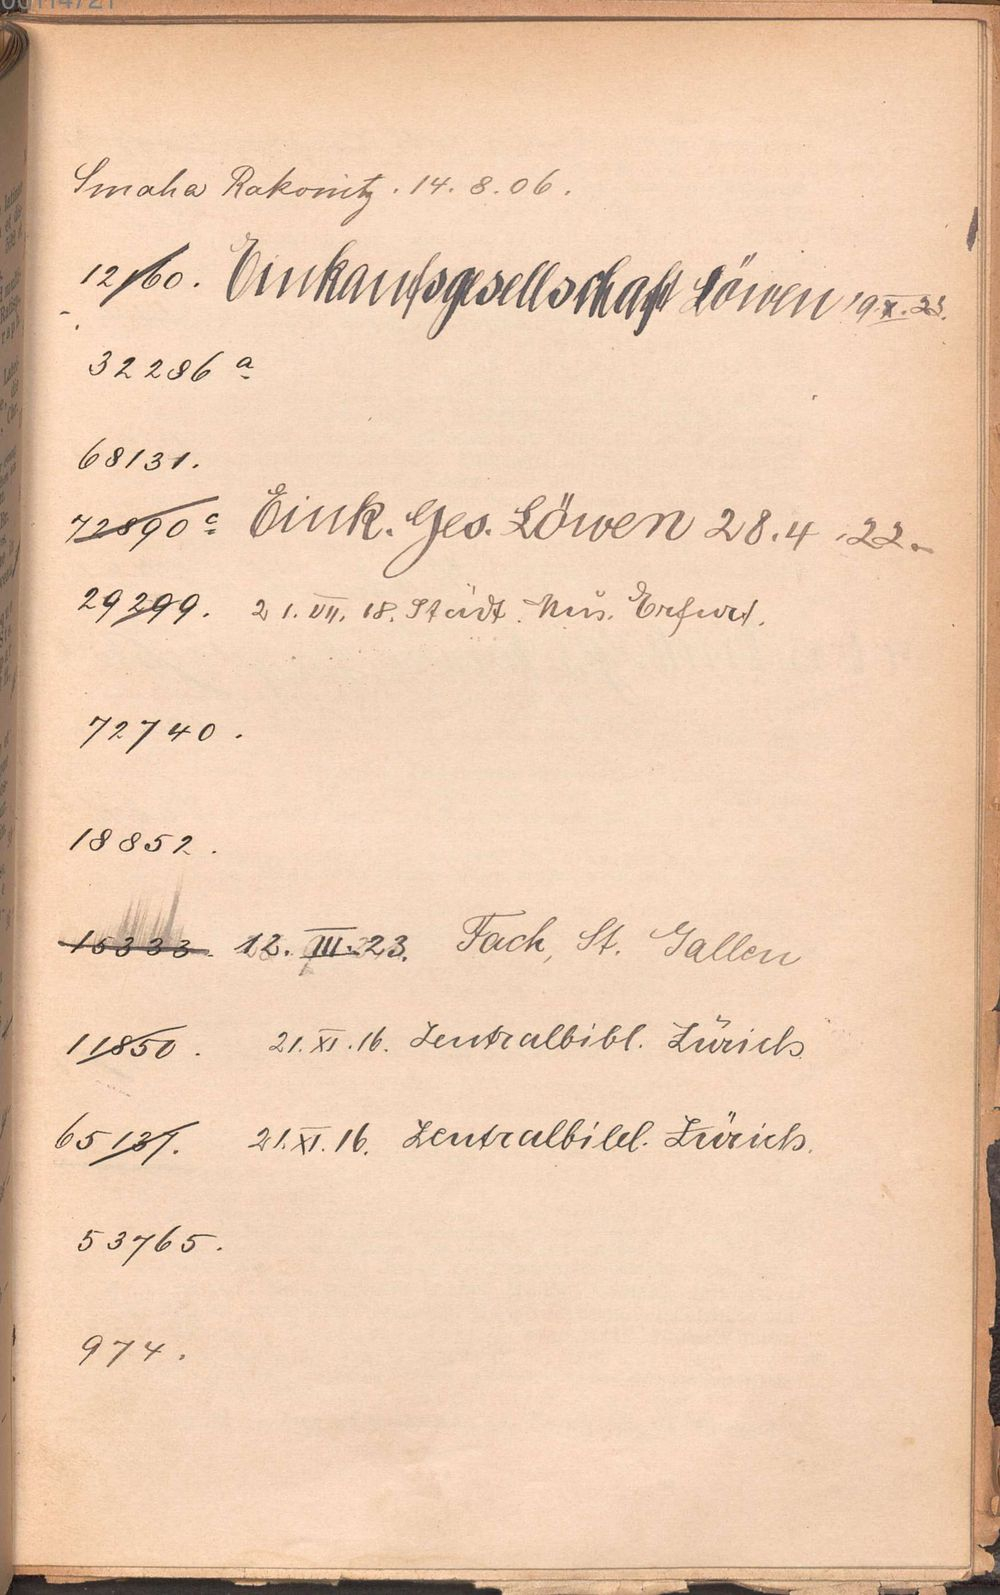 Smaha Rakonitz. 14. 8. 06.
12160. Einkaufsgesellschaft Löwen 19.X.23.
32286 a
68131.
72890 c Eink. Ges. Löwen 28.4.22.
29299. 21. VII. 18. Städt. Mus. Erfurt.
72740.
18852.
15333. 12. III. 23. Fach, St. Gallen
11850. 21. XI. 16. Zentralbibl. Zürich
65131. 21. XI. 16. Zentralbibl. Zürich.
53765.
974.